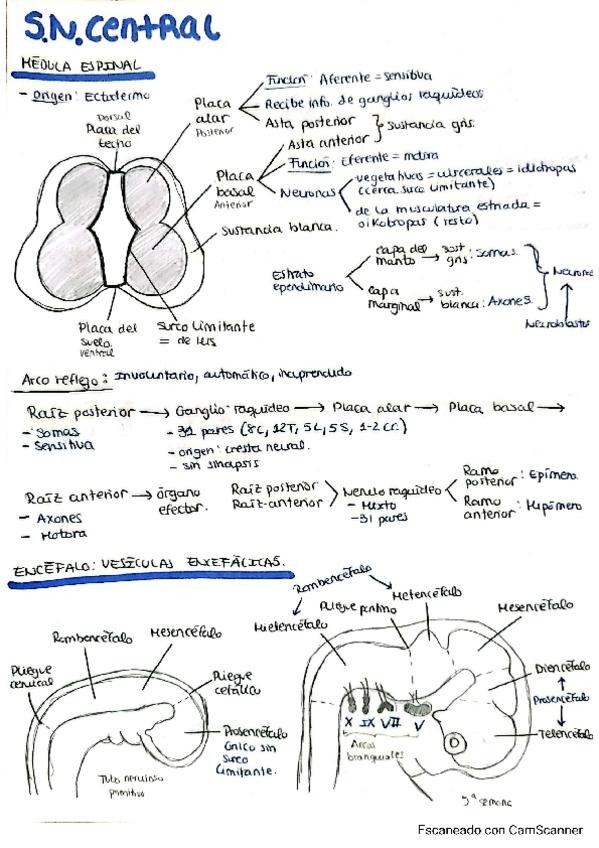 S.N. CENTRAL
MÉDULA ESPINAL
- Origen: Ectodermo
Dorsal
Placa del
techo
Placa
alar
Posterior
Función: Aferente = sensitiva
Recibe info. de ganglios raquídeos
Asta posterior
Asta anterior
Sustancia gris.
Placa
basal
Anterior
Función: Eferente = motora
Neuronas
vegetativas = viscerales = idiotropas
(cerca surco limitante)
de la musculatura estriada =
oikotropas (resto)
sustancia blanca.
Placa del
suelo.
ventral
Surco limitante
= de His
Estrato
ependimario
capa del
manto → sust.
gris: Somas
capa
marginal → sust.
blanca: Axones.
Neurona
Neuroblastos
Arco reflejo: Involuntario, automático, inaprendido
Raíz posterior → Ganglio raquídeo → Placa alar → Placa basal →
- Somas
- Sensitiva
- 31 pares (8C, 12T, 5L, 5S, 1-2 CC)
- origen: cresta neural.
- sin sinapsis
Raíz anterior → órgano
efector.
- Axones
- Motora
Raíz posterior
Raíz anterior
Nervio raquídeo
- Mixto
- 31 pares
Ramo
posterior: Epímero
Ramo
anterior: Hipómero
ENCÉFALO: VESÍCULAS ENCEFÁLICAS.
Rombencéfalo
Mesencéfalo
Pliegue
cervical
Pliegue
cefálico
Prosencéfalo
único sin
surco
limitante.
Tubo nervioso
primitivo
Rombencéfalo
Mielencéfalo
Pliegue pontino
Metencéfalo
Mesencéfalo
Diencéfalo
Prosencéfalo
Telencéfalo
X IX VII V
Arcos
branquiales
5ª semana
Escaneado con CamScanner